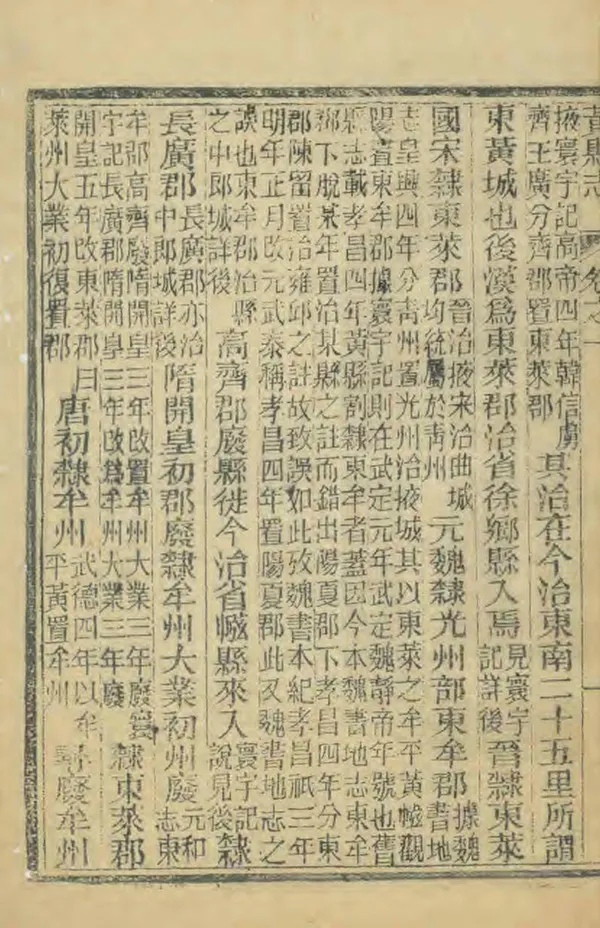 黃縣志　卷之一
掖寰宇記高帝四年韓信虜
齊王廣分齊郡置東萊郡
其治在今治東南二十五里所謂
東黃城也後漢爲東萊郡治省徐鄉縣入焉
見寰宇
記詳後
晉隸東萊
國宋隸東萊郡
晉治掖宋治曲城
均統屬於靑州
元魏隸光州部東牟郡
據魏
書地
志皇興四年分靑州置光州治掖城其以東萊之牟平黃㡉觀
陽置東牟郡據寰宇記則在武定元年武定魏靜帝年號也舊
縣志載孝昌四年黃縣割隸東牟者蓋因今本魏書地志東牟
郡下脫某年置治某縣之註而錯出陽夏郡下孝昌四年分東
郡陳留置治雍邱之註故致誤如此攷魏書本紀孝昌祇三年
明年正月改元武泰稱孝昌四年置陽夏郡此又魏書地志之
誤也東牟郡治縣
之中郎城詳後
高齊郡廢縣徙今治省㡉縣來入
寰宇記
說見後
隸
長廣郡
長廣郡亦治
中郎城詳後
隋開皇初郡廢隸牟州大業初州廢
元和
志東
牟郡高齊廢隋開皇三年改置牟州大業三年廢寰
宇記長廣郡隋開皇三年改爲牟州大業三年廢
隸東萊郡
開皇五年改東萊郡曰
萊州大業初復置郡
唐初隸牟州
武德四年以牟
平黃置牟州
尋廢牟州